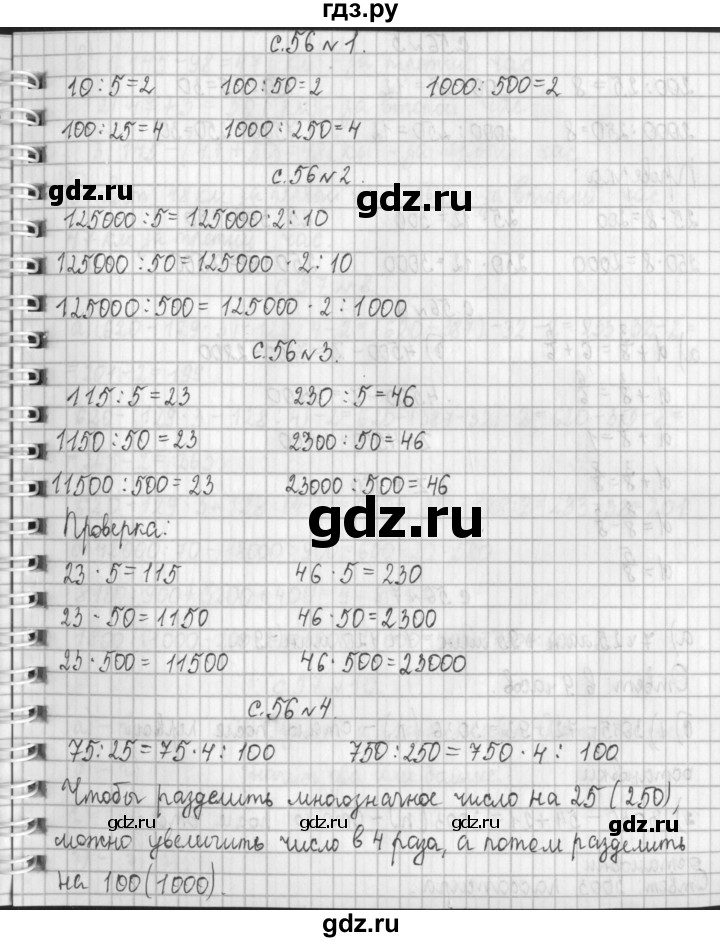 гдз.ру
с.56 №1.
10:5=2 100:50=2 1000:500=2
100:25=4 1000:250=4
с.56 №2.
gdz.ru
gdz.ru
125000:5=125000·2:10
125000:50=125000·2:10
125000:500=125000·2:1000
с.56 №3.
115:5=23 230:5=46
1150:50=23 2300:50=46
11500:500=23 23000:500=46
gdz.ru
Проверка:
23·5=115 46·5=230
23·50=1150 46·50=2300
23·500=11500 46·500=23000
с.56 №4.
75:25=75·4:100 750:250=750·4:100
Чтобы разделить многозначное число на 25 (250),
gdz.ru gdz.ru gdz.ru
можно увеличить число в 4 раза, а потом разделить
на 100(1000).
gdz.ru